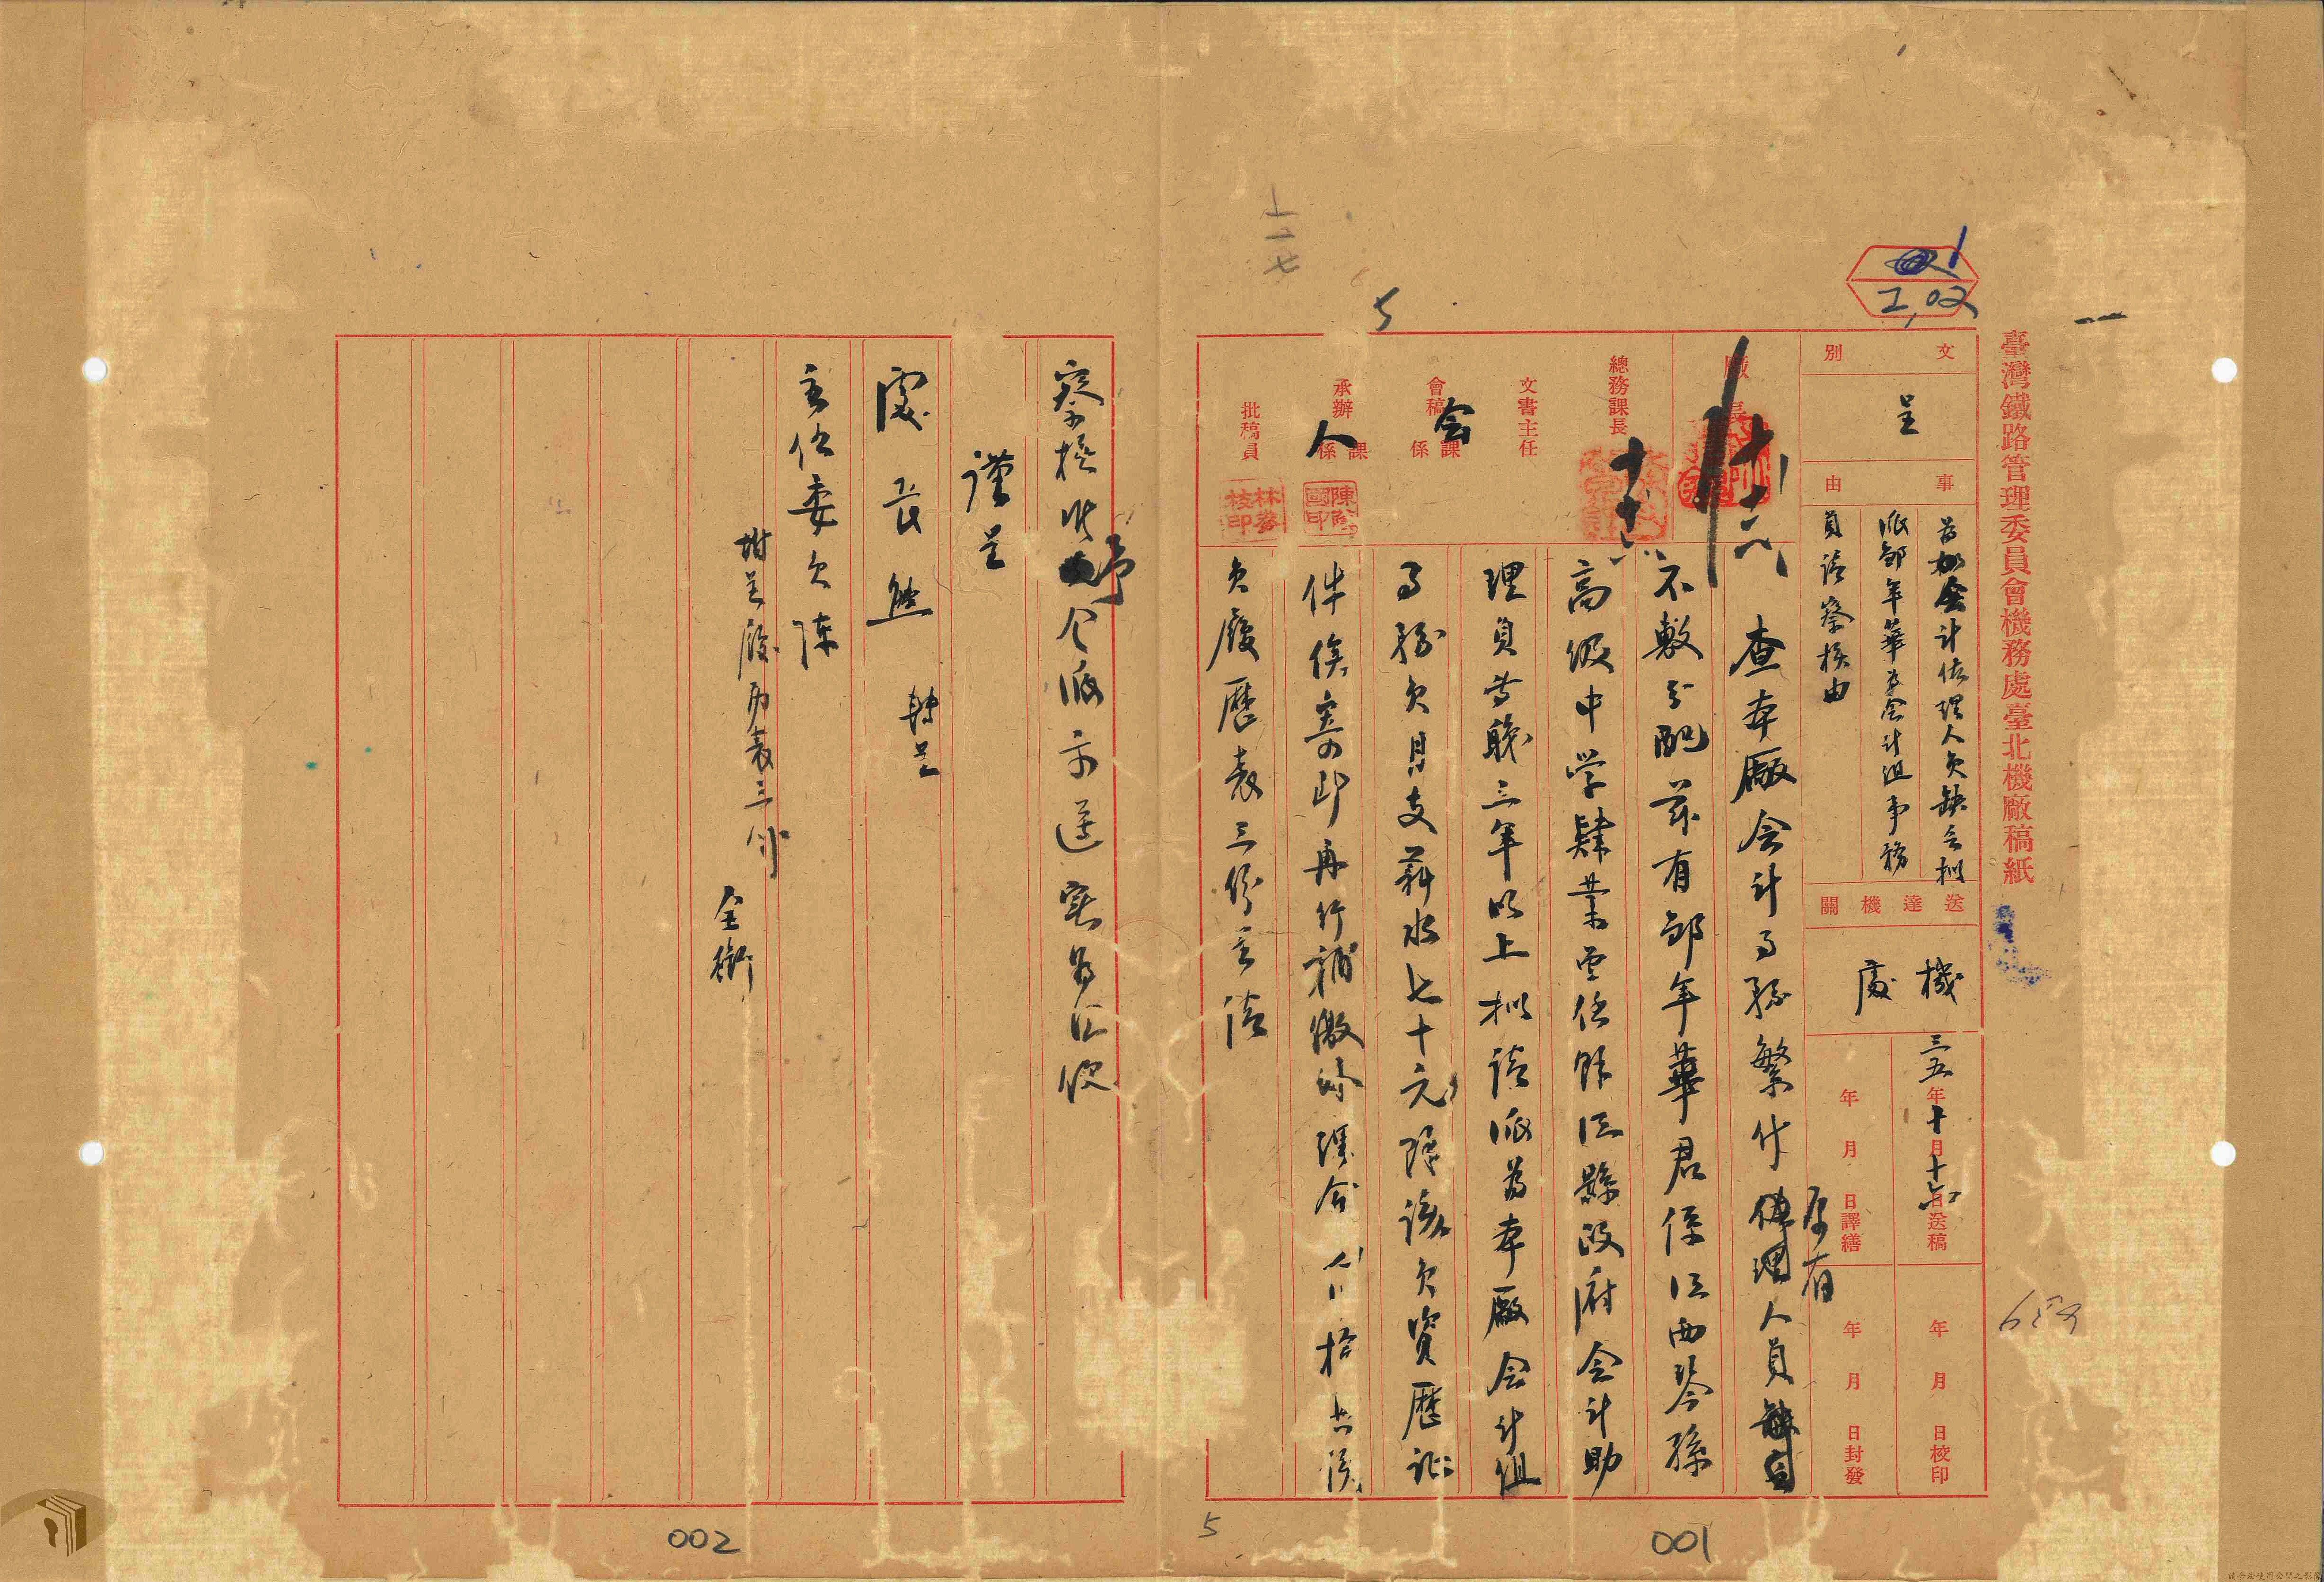 臺灣鐵路管理委員會機務處臺北機廠稿紙
1
2,02
文別
呈
事由
為本會計佐理人員缺乏擬
派鄒年華為會計組事務
員請察核由
送達機關
機處
三五年十月十六日送稿
年 月 日譯繕
年 月 日校印
年 月 日封發
廠長
總務課長
十六
文書主任
會稿 課係
会
承辦 課係
人
陳 國印
批稿員
林 枝印
查本廠会計事務繁什原有佐理人員
不敷分配茲有鄒年華君係江西
高級中学肄業曾任 江縣政府会計助
理員等職三年以上拟請派為本廠会計組
事務員月支薪水七十元除該員資歷証
件俟寄即再行補繳外理合 拾 該
員履歷表三份呈請
察核准予 派 實為公便
謹呈
處長 轉呈
主任委員陳
附呈履历表三份
全銜
5
001
5
002